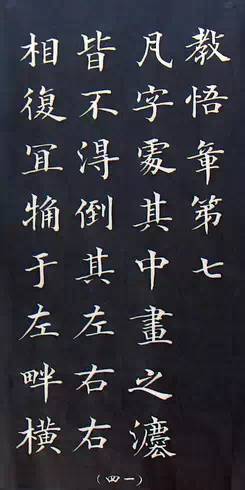 教悟章第七
凡字處其中畫之灋
皆不得倒其左右右
相復冝觕于左畔橫
（四一）